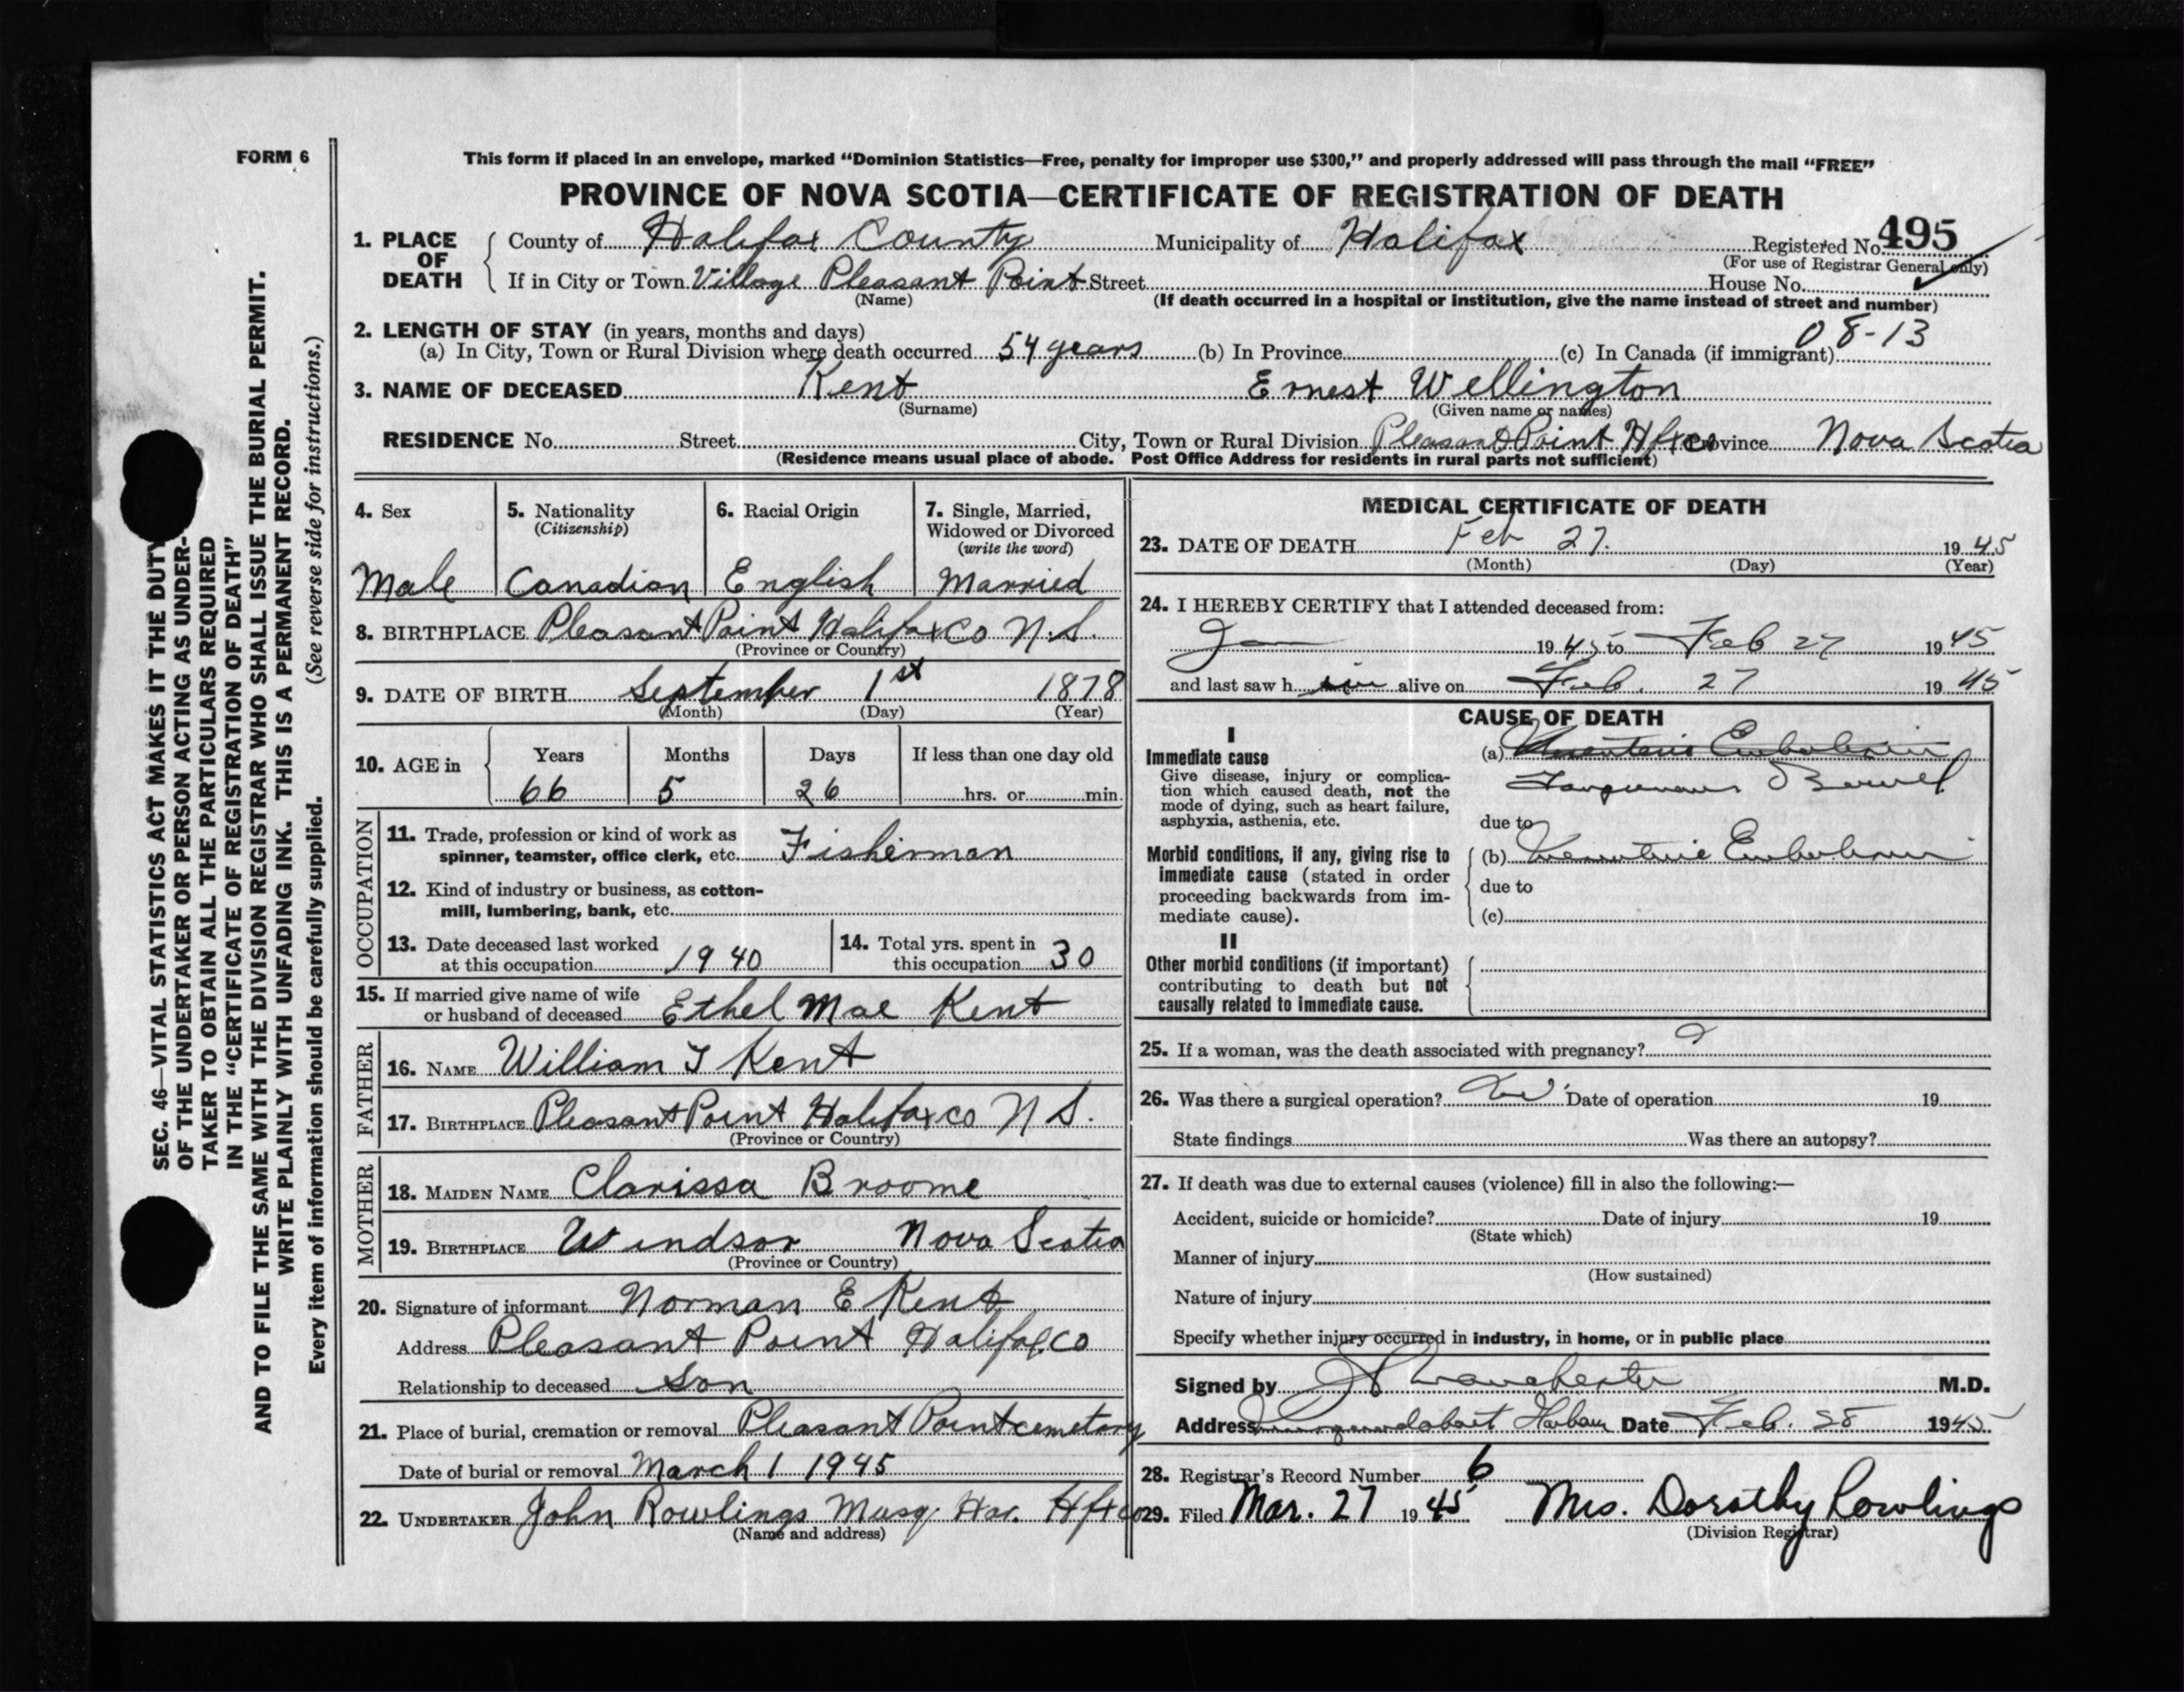 FORM 6
SEC. 46—VITAL STATISTICS ACT MAKES IT THE DUTY
OF THE UNDERTAKER OR PERSON ACTING AS UNDER-
TAKER TO OBTAIN ALL THE PARTICULARS REQUIRED
IN THE "CERTIFICATE OF REGISTRATION OF DEATH"
AND TO FILE THE SAME WITH THE DIVISION REGISTRAR WHO SHALL ISSUE THE BURIAL PERMIT.
WRITE PLAINLY WITH UNFADING INK. THIS IS A PERMANENT RECORD.
Every item of information should be carefully supplied. (See reverse side for instructions.)
This form if placed in an envelope, marked "Dominion Statistics—Free, penalty for improper use $300," and properly addressed will pass through the mail "FREE"
PROVINCE OF NOVA SCOTIA—CERTIFICATE OF REGISTRATION OF DEATH
1. PLACE OF DEATH County of Halifax County Municipality of Halifax Registered No. 495
(For use of Registrar General only)
If in City or Town Village Pleasant Point Street House No.
(Name) (If death occurred in a hospital or institution, give the name instead of street and number)
2. LENGTH OF STAY (in years, months and days) 08-13
(a) In City, Town or Rural Division where death occurred 54 years (b) In Province (c) In Canada (if immigrant)
3. NAME OF DECEASED Kent Ernest Wellington
(Surname) (Given name or names)
RESIDENCE No. Street City, Town or Rural Division Pleasant Point Hfx co Province Nova Scotia
(Residence means usual place of abode. Post Office Address for residents in rural parts not sufficient)
4. Sex Male
5. Nationality (Citizenship) Canadian
6. Racial Origin English
7. Single, Married, Widowed or Divorced (write the word) Married
8. BIRTHPLACE Pleasant Point Halifax Co N.S.
(Province or Country)
9. DATE OF BIRTH September 1st 1878
(Month) (Day) (Year)
10. AGE in Years Months Days If less than one day old
66 5 26 hrs. or min.
OCCUPATION
11. Trade, profession or kind of work as
spinner, teamster, office clerk, etc. Fisherman
12. Kind of industry or business, as cotton-
mill, lumbering, bank, etc.
13. Date deceased last worked
at this occupation 1940
14. Total yrs. spent in
this occupation 30
15. If married give name of wife
or husband of deceased Ethel Mae Kent
FATHER
16. NAME William J Kent
17. BIRTHPLACE Pleasant Point Halifax co N S.
(Province or Country)
MOTHER
18. MAIDEN NAME Clarissa Broome
19. BIRTHPLACE Windsor Nova Scotia
(Province or Country)
20. Signature of informant Norman E Kent
Address Pleasant Point Halifax co
Relationship to deceased Son
21. Place of burial, cremation or removal Pleasant Point cemetary
Date of burial or removal March 1 1945
22. UNDERTAKER John Rowlings Musq. Har. Hfx co
(Name and address)
MEDICAL CERTIFICATE OF DEATH
23. DATE OF DEATH Feb 27. 1945
(Month) (Day) (Year)
24. I HEREBY CERTIFY that I attended deceased from:
Jan 1945 to Feb 27 1945
and last saw him alive on Feb. 27 1945
CAUSE OF DEATH
I
Immediate cause
Give disease, injury or complica-
tion which caused death, not the
mode of dying, such as heart failure,
asphyxia, asthenia, etc.
(a) Mesenteric Embolism
Bowel
due to
Morbid conditions, if any, giving rise to
immediate cause (stated in order
proceeding backwards from im-
mediate cause).
(b) Mesenteric Embolism
due to
(c)
II
Other morbid conditions (if important)
contributing to death but not
causally related to immediate cause.
25. If a woman, was the death associated with pregnancy?
26. Was there a surgical operation? No Date of operation 19
State findings Was there an autopsy?
27. If death was due to external causes (violence) fill in also the following:—
Accident, suicide or homicide? Date of injury 19
(State which)
Manner of injury
(How sustained)
Nature of injury
Specify whether injury occurred in industry, in home, or in public place
Signed by M.D.
Address Musquodoboit Harbour Date Feb. 28 1945
28. Registrar's Record Number 6
29. Filed Mar. 27 1945 Mrs. Dorothy Rowlings
(Division Registrar)